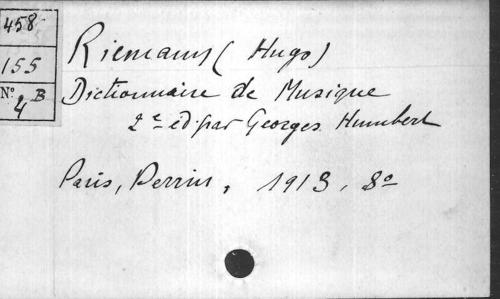 458
155
N° 4 B
Riemann (Hugo)
Dictionnaire de Musique
2e éd. par Georges Humbert
Paris, Perrin, 1913, 8o